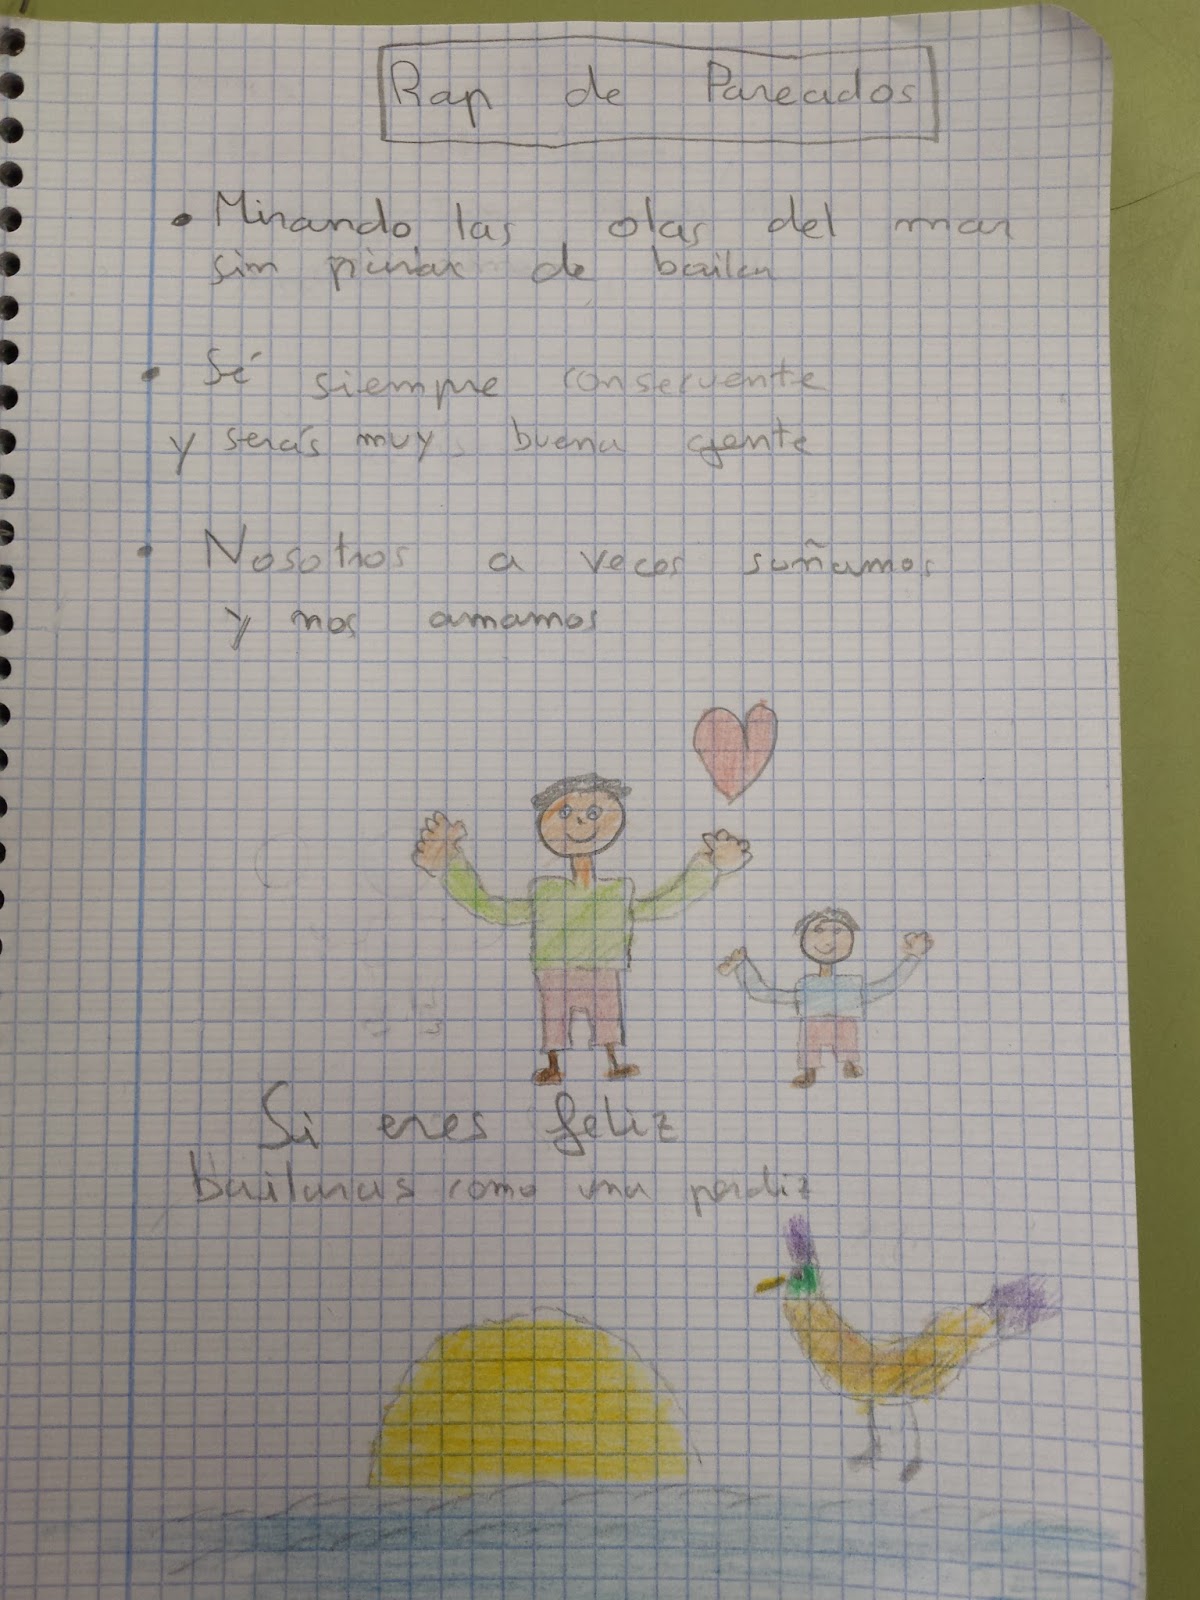 Rap de Pareados
• Mirando las olas del mar
sin parar de bailar
• Sé siempre consecuente
y serás muy buena gente
• Nosotros a veces soñamos
y nos amamos
Si eres feliz
bailaras como una perdiz